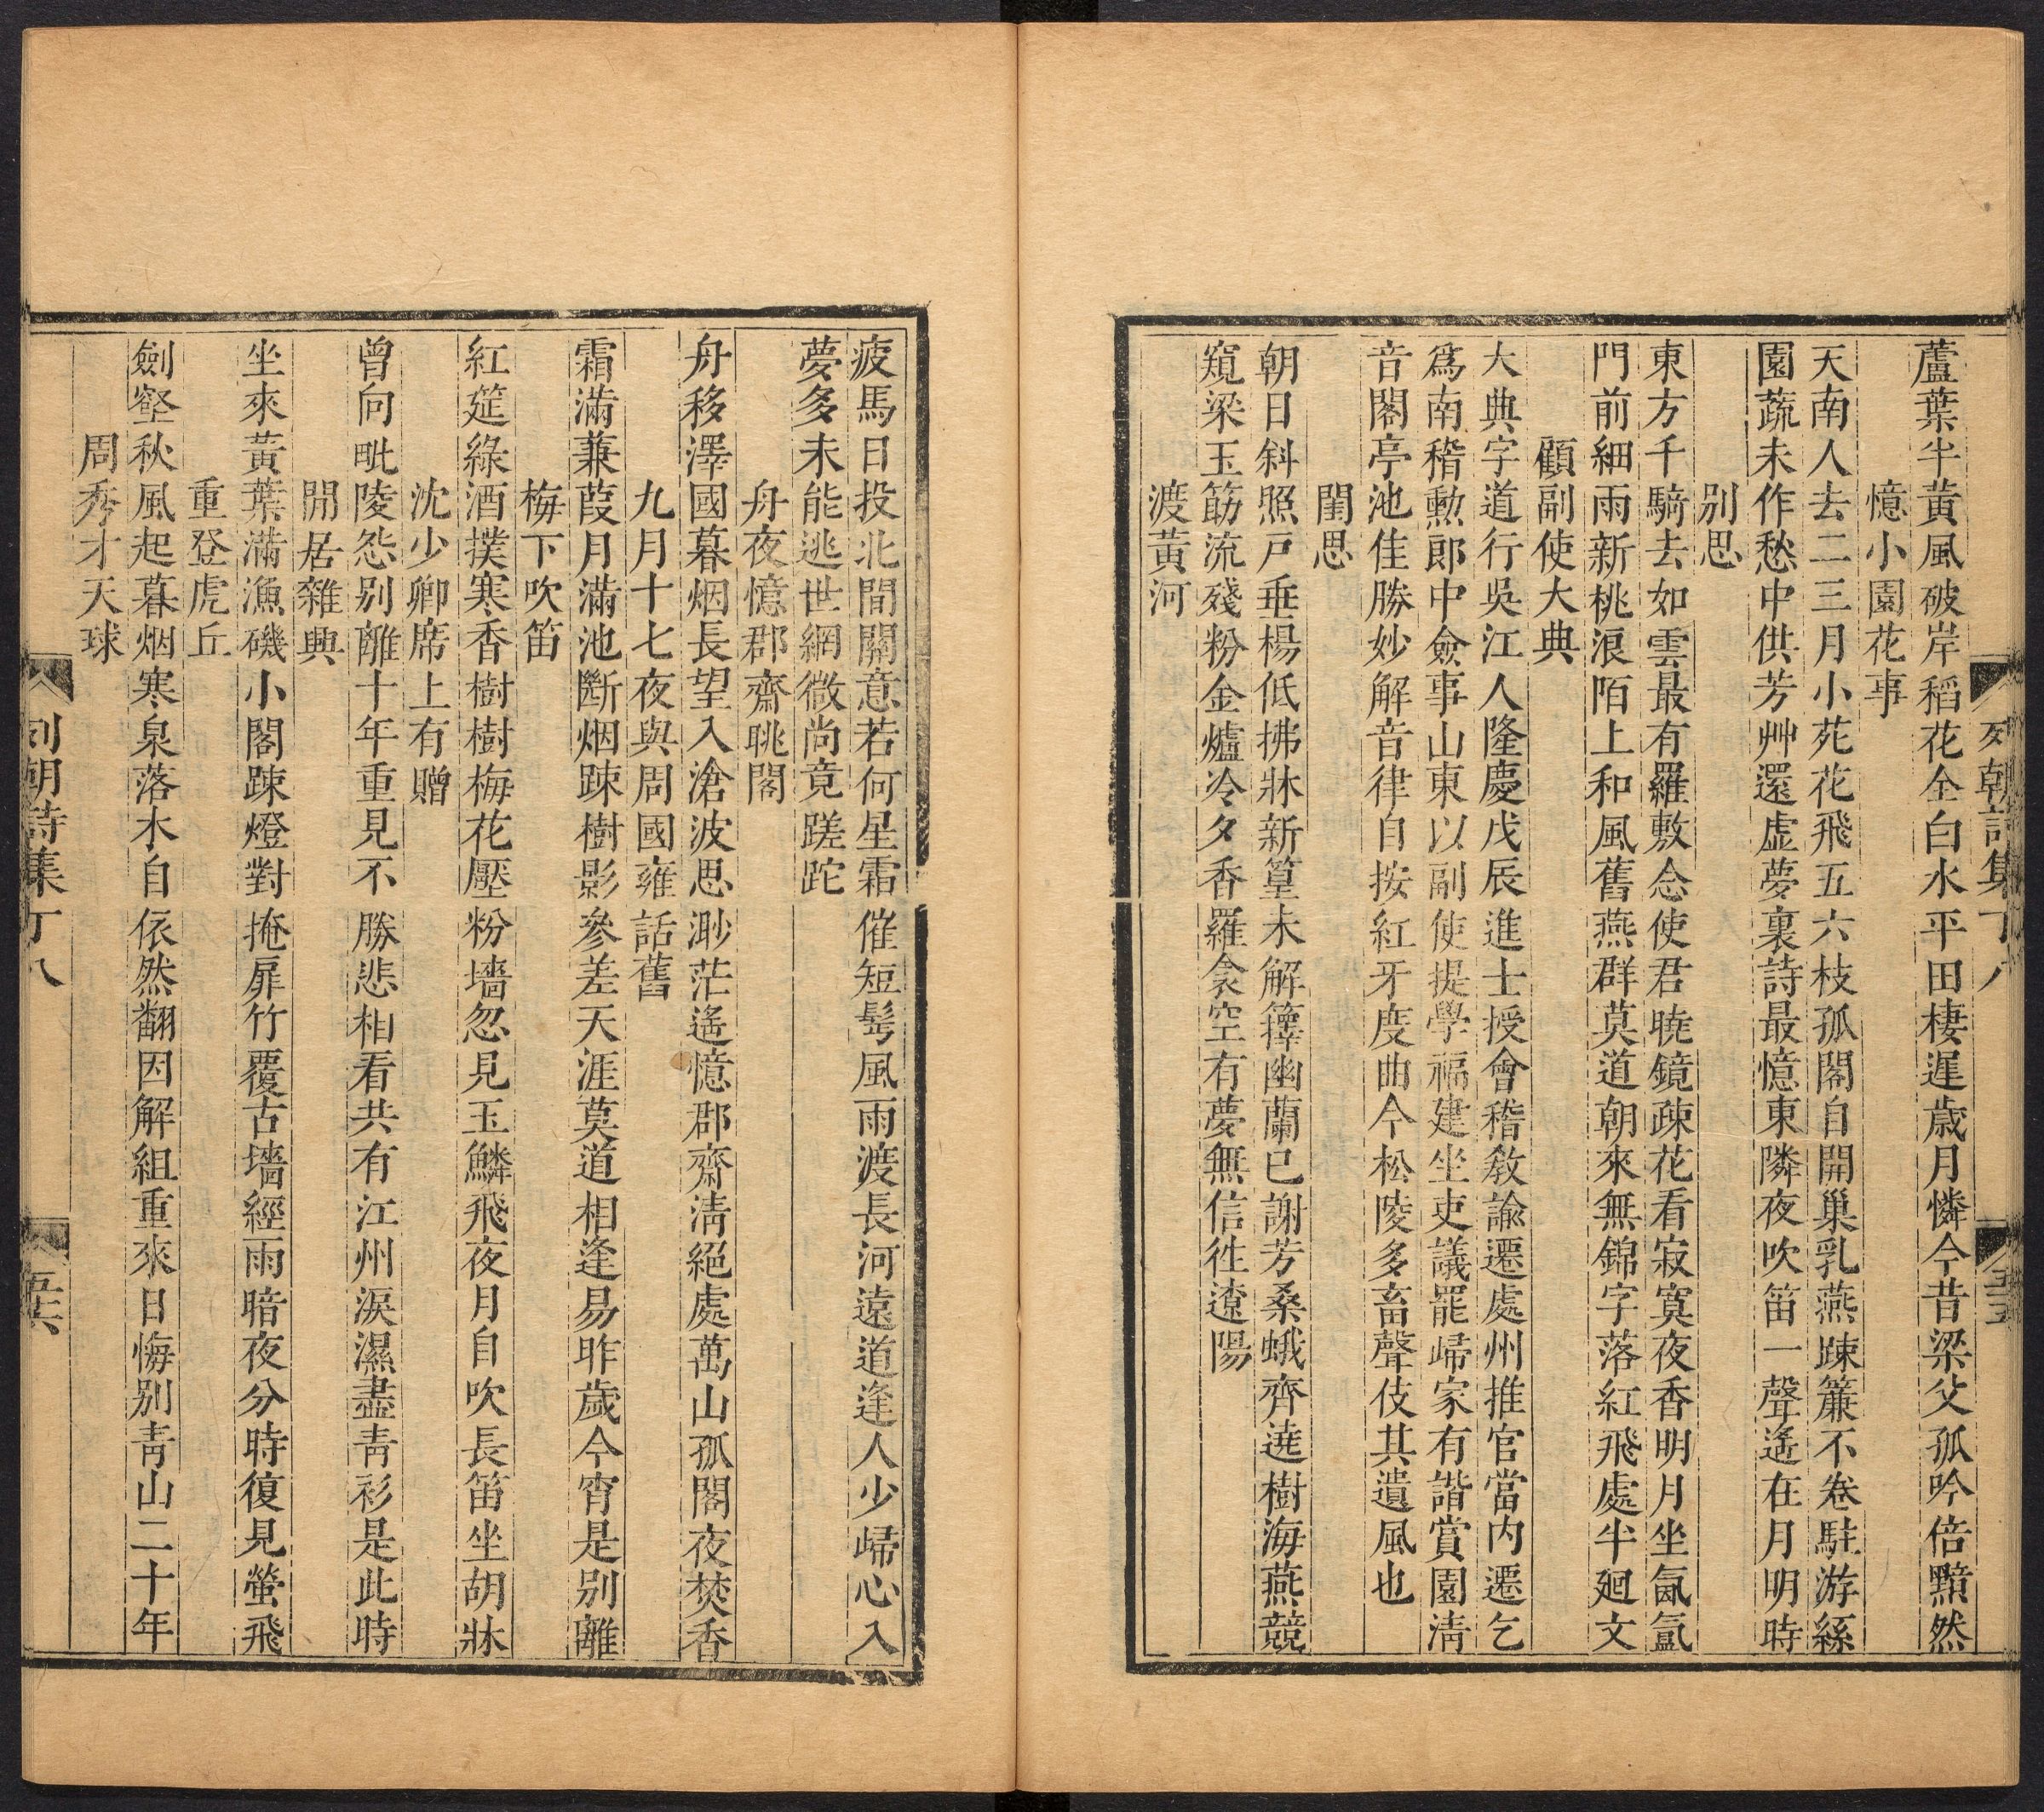 列朝詩集丁八
五十五
蘆葉半黃風破岸稻花全白水平田棲遲歲月憐今昔梁父孤吟倍黯然
憶小園花事
天南人去二三月小苑花飛五六枝孤閣自開巢乳燕踈簾不卷駐游絲
園蔬未作愁中供芳艸還虛夢裏詩最憶東隣夜吹笛一聲遙在月明時
別思
東方千騎去如雲最有羅敷念使君曉鏡疎花看寂寞夜香明月坐氤氳
門前細雨新桃浪陌上和風舊燕群莫道朝來無錦字落紅飛處半廻文
顧副使大典
大典字道行吳江人隆慶戊辰進士授會稽教諭遷處州推官當內遷乞
爲南稽勳郎中僉事山東以副使提學福建坐吏議罷歸家有諧賞園淸
音閣亭池佳勝妙解音律自按紅牙度曲今松陵多畜聲伎其遺風也
閨思
朝日斜照戶垂楊低拂牀新篁未解籜幽蘭已謝芳桑蛾齊遶樹海燕競
窺梁玉筯流殘粉金爐冷夕香羅衾空有夢無信徃遼陽
渡黃河
疲馬日投北間關意若何星霜催短髩風雨渡長河遠道逢人少歸心入
夢多未能逃世網微尚竟蹉跎
舟夜憶郡齋眺閣
舟移澤國暮烟長望入滄波思渺茫遙憶郡齋淸絕處萬山孤閣夜焚香
九月十七夜與周國雍話舊
霜滿蒹葭月滿池斷烟踈樹影參差天涯莫道相逢易昨歲今宵是別離
梅下吹笛
紅筵綠酒撲寒香樹樹梅花壓粉墻忽見玉鱗飛夜月自吹長笛坐胡牀
沈少卿席上有贈
曾向毗陵怨別離十年重見不勝悲相看共有江州淚濕盡靑衫是此時
閒居雜興
坐來黃葉滿漁磯小閣踈燈對掩扉竹覆古墻經雨暗夜分時復見螢飛
重登虎丘
劍壑秋風起暮烟寒泉落木自依然翻因解組重來日悔別靑山二十年
周秀才天球
列朝詩集丁八
五十六